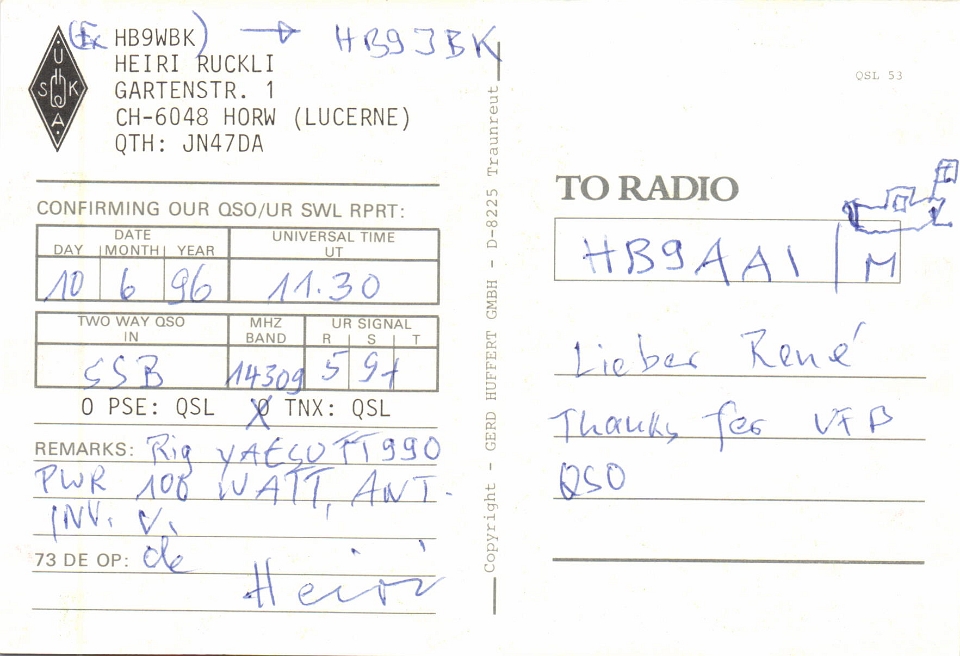 (Ex HB9WBK) → HB9JBK
HEIRI RUCKLI
GARTENSTR. 1
CH-6048 HORW (LUCERNE)
QTH: JN47DA
U
S K
A
CONFIRMING OUR QSO/UR SWL RPRT:
DATE UNIVERSAL TIME
DAY MONTH YEAR UT
10 6 96 11.30
TWO WAY QSO MHZ UR SIGNAL
IN BAND R S T
SSB 14309 5 9+
O PSE: QSL X O TNX: QSL
REMARKS: Rig YAESU FT990
PWR 100 WATT, ANT.
INV. V.
73 DE OP: de
Heiri
Copyright - GERD HUFFERT GMBH - D-8225 Traunreut
QSL 53
TO RADIO
HB9AAI / M
Lieber René
Thanks for VFB
QSO